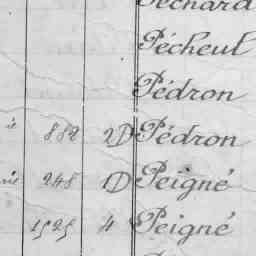 Péchard
Pécheut
Pédron
882 2D Pédron
248 1D Peigné
1525 4 Peigné